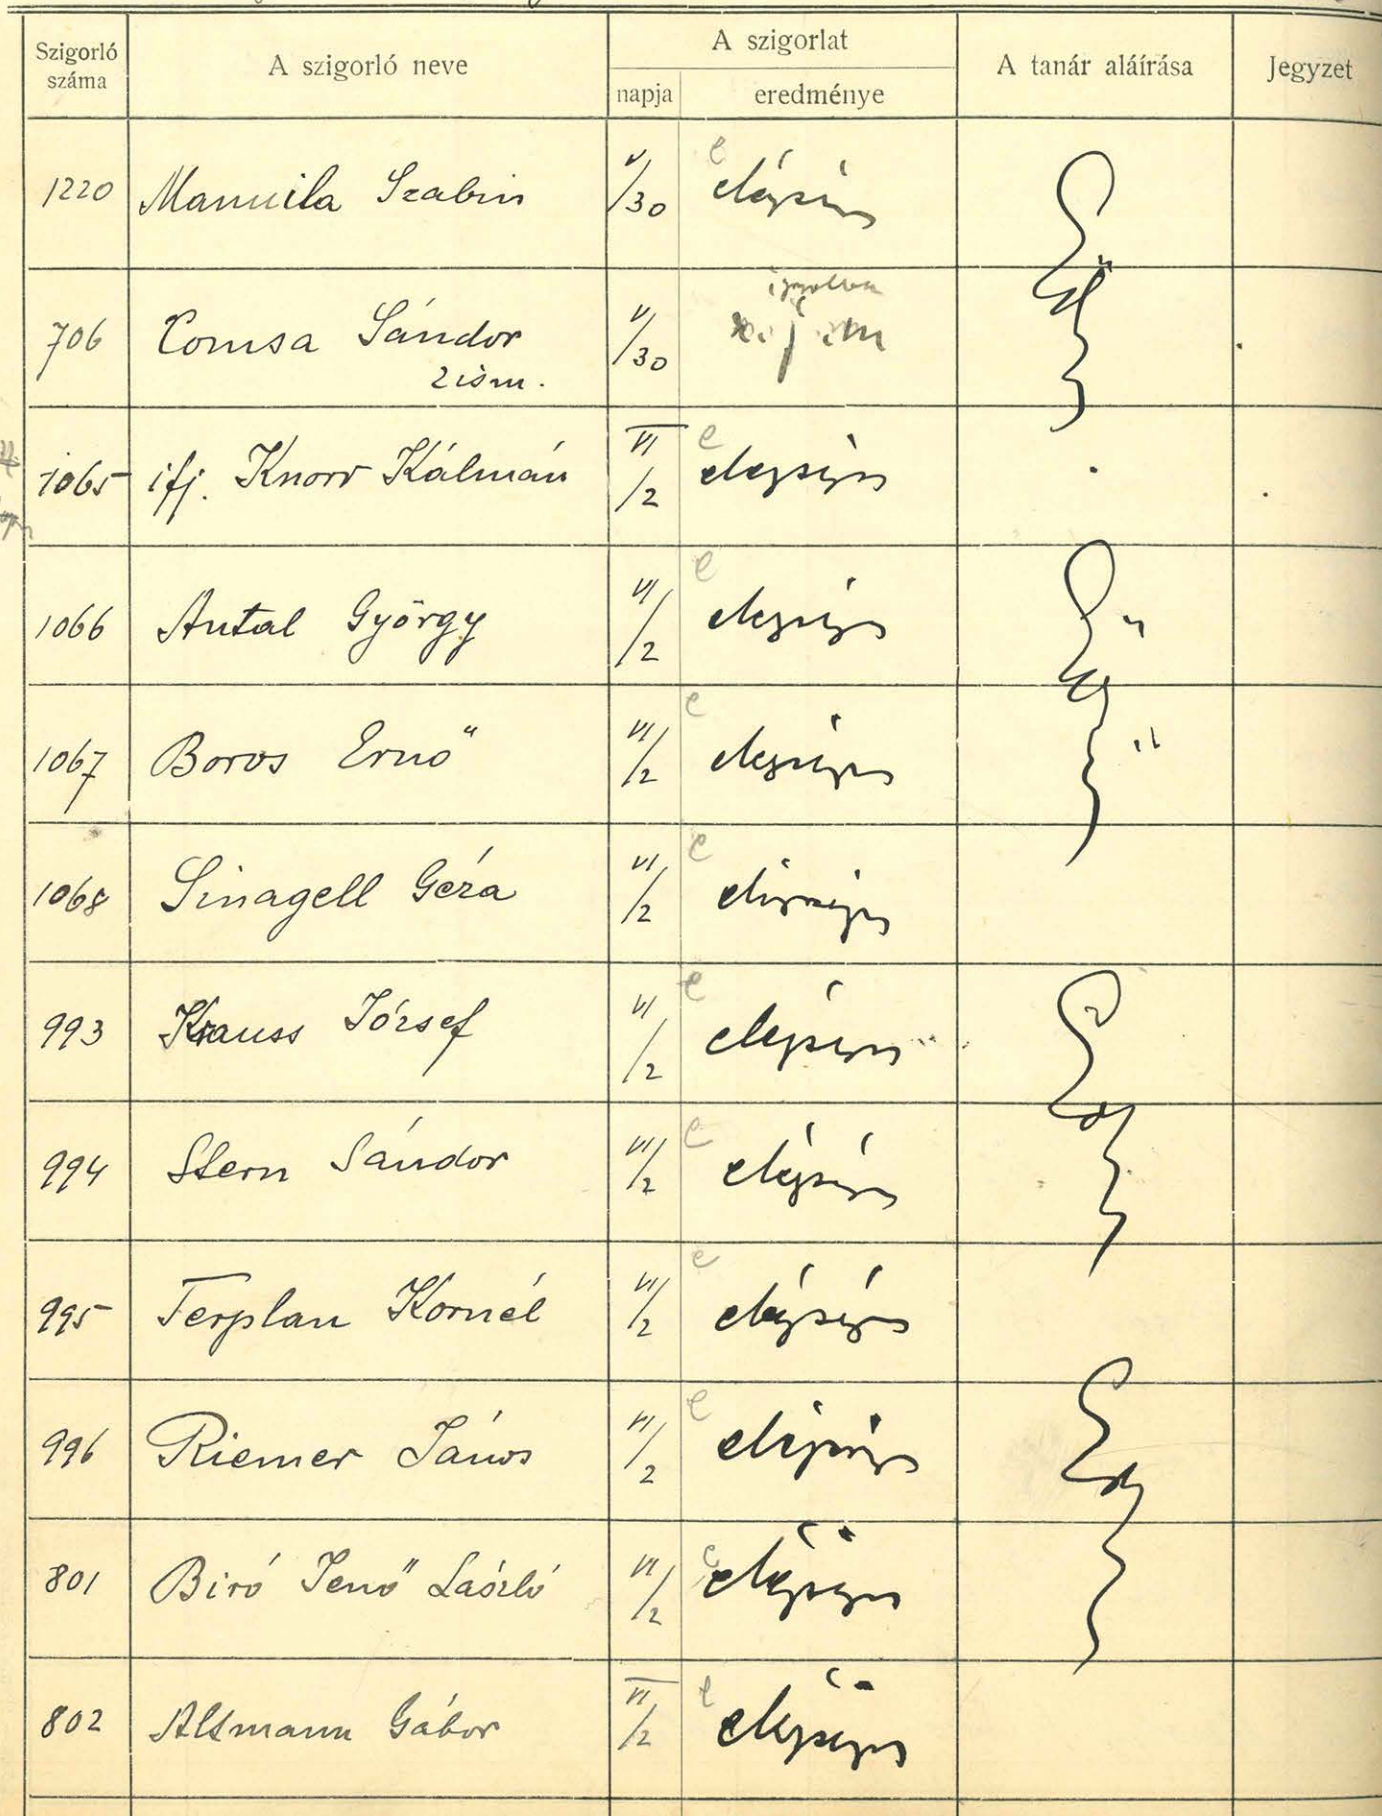 Szigorló száma
A szigorló neve
A szigorlat
napja
eredménye
A tanár aláírása
Jegyzet
1220 Manuila Szabin V/30 e elégséges
706 Comsa Sándor V/30
2 ism.
1065 ifj. Knorr Kálmán VI/2 e elegséges
1066 Antal György VI/2 e elegséges
1067 Boros Ernő VI/2 e elegséges
1068 Sinagell Géza VI/2 e elégséges
993 Krauss József VI/2 e elégséges
994 Stern Sándor VI/2 e elégséges
995 Ferplan Kornél VI/2 e elégséges
996 Riemer János VI/2 e elégséges
801 Biró Jenő László VI/2 e elégséges
802 Altmann Gábor VI/2 e elégséges